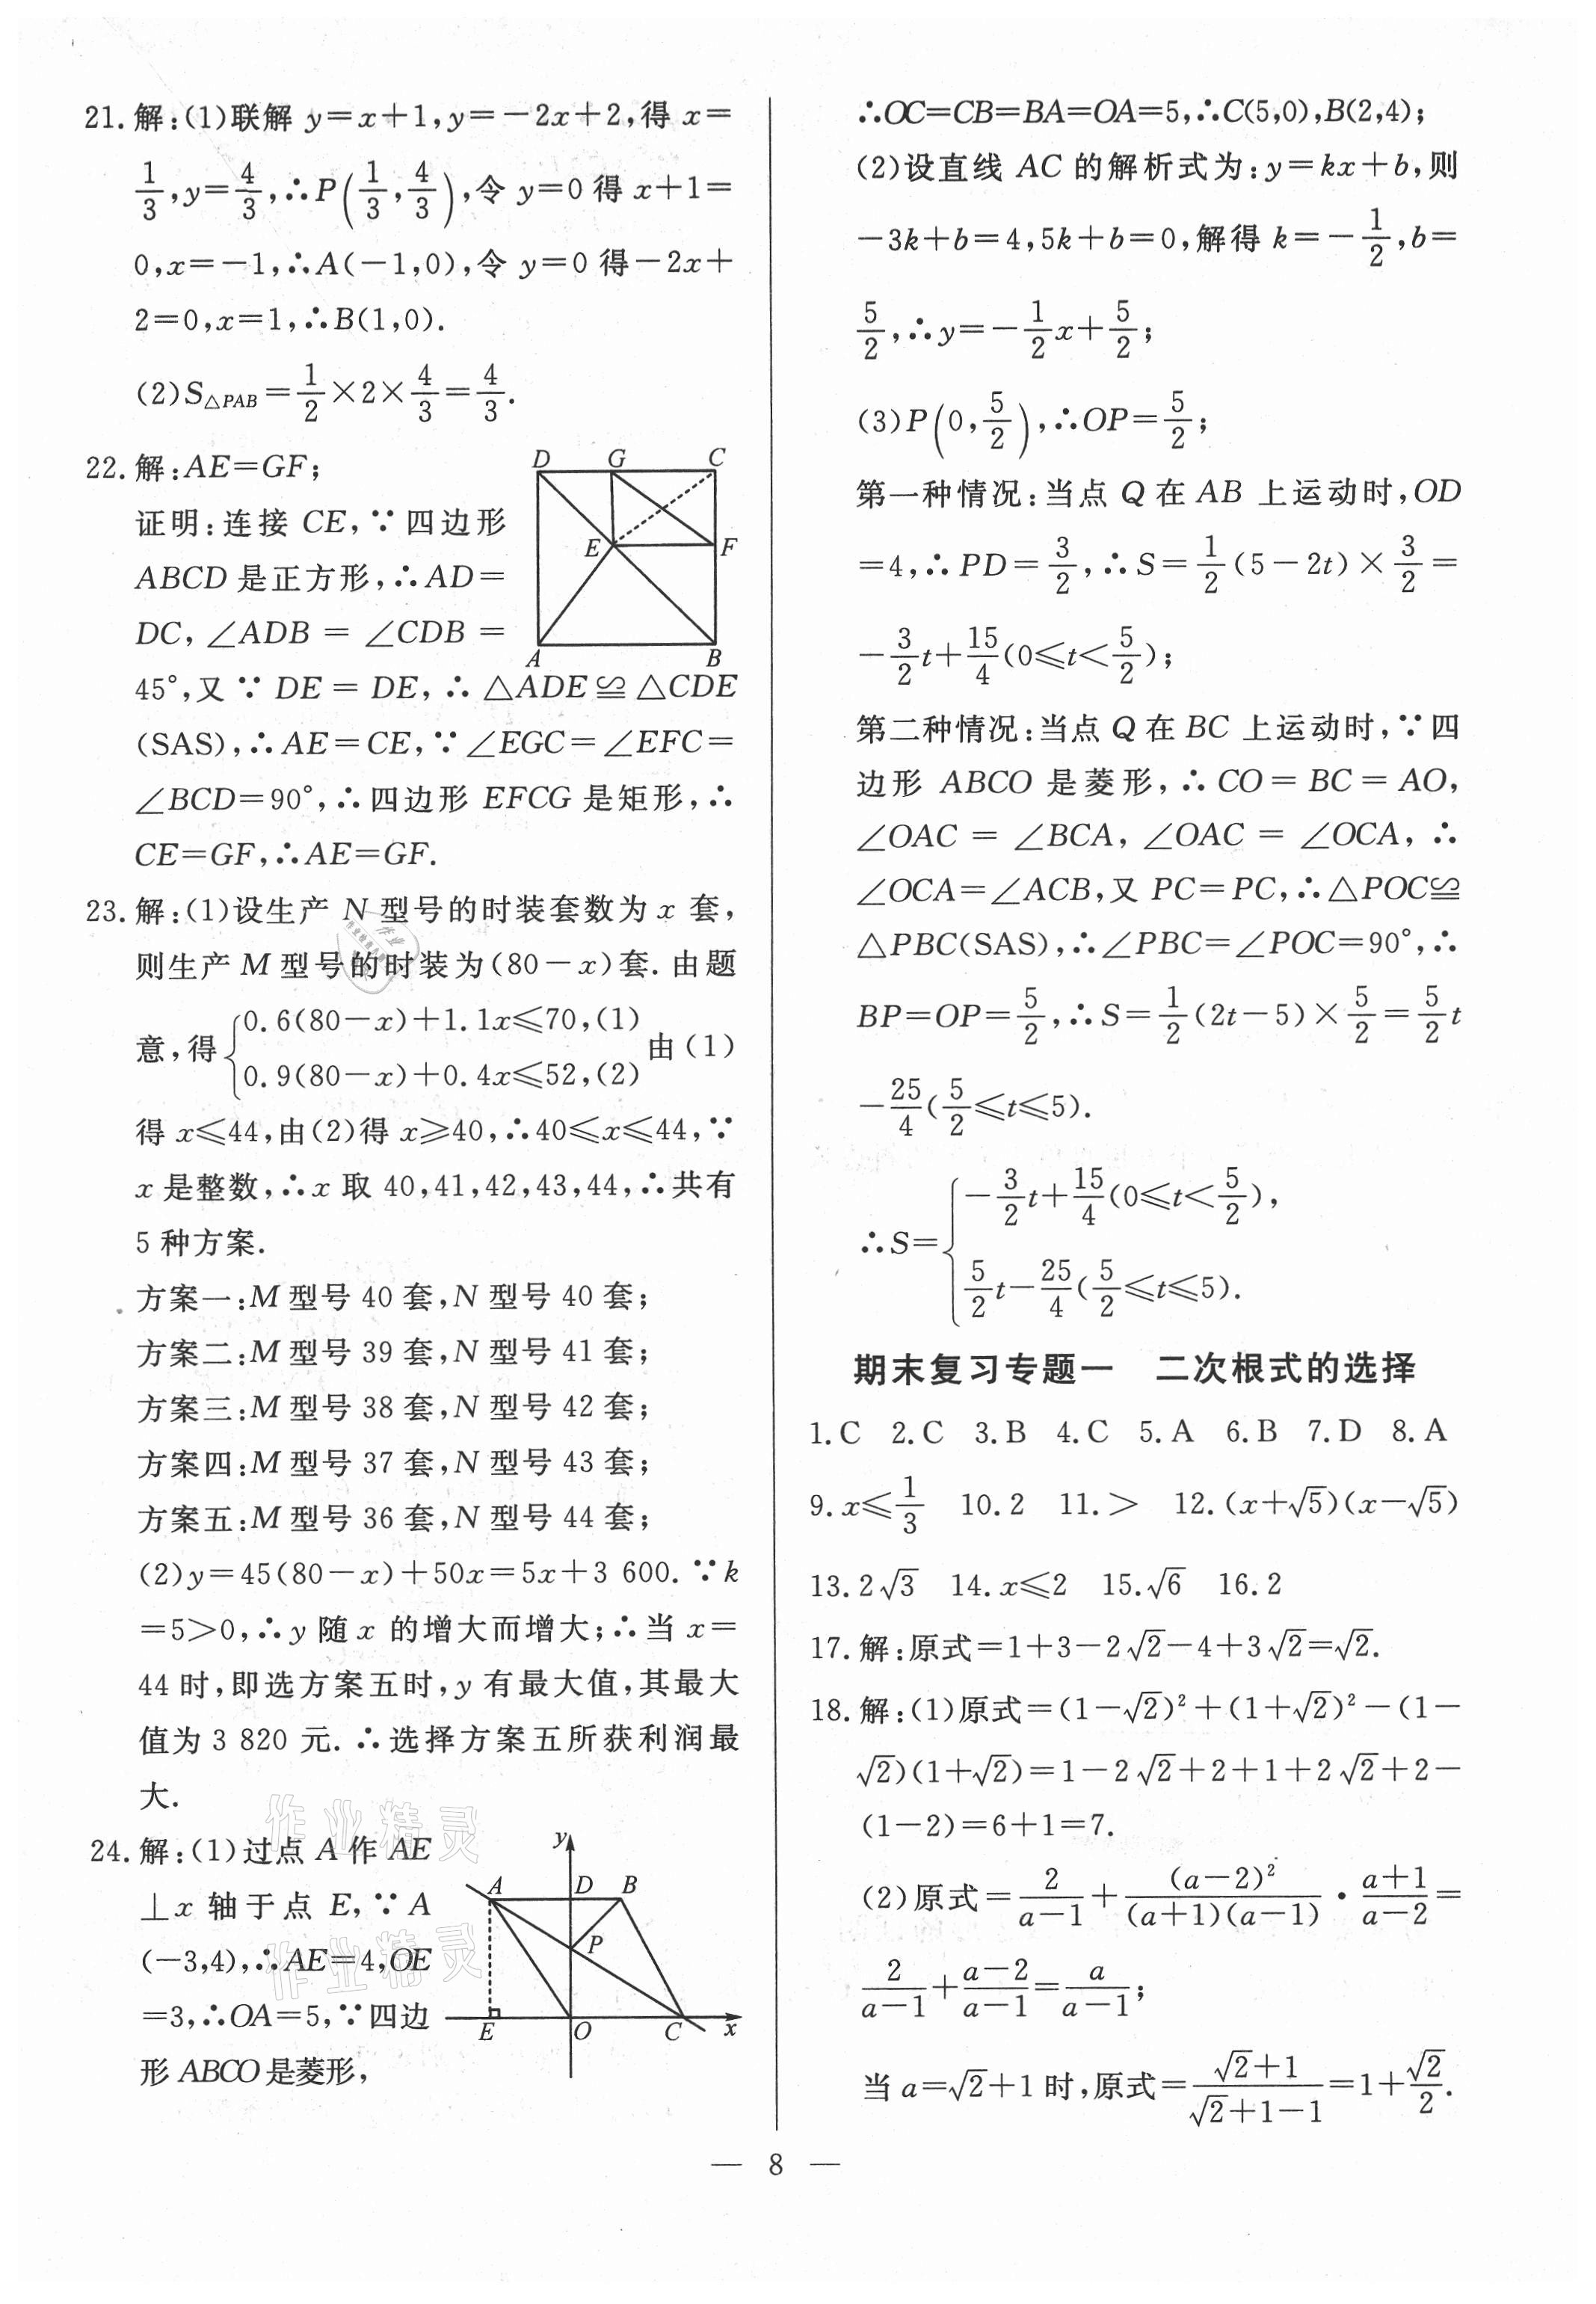 21. 解:(1)联解 y=x+1,y=-2x+2,得 x=
1/3,y=4/3,∴P(1/3,4/3),令 y=0 得 x+1=
0,x=-1,∴A(-1,0),令 y=0 得-2x+
2=0,x=1,∴B(1,0).
(2)S△PAB=1/2×2×4/3=4/3.
22. 解:AE=GF;
证明:连接 CE,∵四边形
ABCD 是正方形,∴AD=
DC,∠ADB=∠CDB=
D G C
E F
A B
45°,又∵DE=DE,∴△ADE≌△CDE
(SAS),∴AE=CE,∵∠EGC=∠EFC=
∠BCD=90°,∴四边形 EFCG 是矩形,∴
CE=GF,∴AE=GF.
23. 解:(1)设生产 N 型号的时装套数为 x 套,
则生产 M 型号的时装为(80-x)套. 由题
意,得{0.6(80-x)+1.1x≤70,(1)
0.9(80-x)+0.4x≤52,(2) 由(1)
得 x≤44,由(2)得 x≥40,∴40≤x≤44,∵
x 是整数,∴x 取 40,41,42,43,44,∴共有
5 种方案.
方案一:M 型号 40 套,N 型号 40 套;
方案二:M 型号 39 套,N 型号 41 套;
方案三:M 型号 38 套,N 型号 42 套;
方案四:M 型号 37 套,N 型号 43 套;
方案五:M 型号 36 套,N 型号 44 套;
(2)y=45(80-x)+50x=5x+3 600. ∵k
=5>0,∴y 随 x 的增大而增大;∴当 x=
44 时,即选方案五时,y 有最大值,其最大
值为 3 820 元. ∴选择方案五所获利润最
大.
作业精灵
24. 解:(1)过点 A 作 AE
⊥x 轴于点 E,∵A
(-3,4),∴AE=4,OE
=3,∴OA=5,∵四边
形 ABCO 是菱形,
作业精灵
y
A D B
P
E O C x
∴OC=CB=BA=OA=5,∴C(5,0),B(2,4);
(2)设直线 AC 的解析式为:y=kx+b,则
-3k+b=4,5k+b=0,解得 k=-1/2,b=
5/2,∴y=-1/2x+5/2;
(3)P(0,5/2),∴OP=5/2;
第一种情况:当点 Q 在 AB 上运动时,OD
=4,∴PD=3/2,∴S=1/2(5-2t)×3/2=
-3/2t+15/4(0≤t<5/2);
第二种情况:当点 Q 在 BC 上运动时,∵四
边形 ABCO 是菱形,∴CO=BC=AO,
∠OAC=∠BCA,∠OAC=∠OCA,∴
∠OCA=∠ACB,又 PC=PC,∴△POC≌
△PBC(SAS),∴∠PBC=∠POC=90°,∴
BP=OP=5/2,∴S=1/2(2t-5)×5/2=5/2t
-25/4(5/2≤t≤5).
∴S={-3/2t+15/4(0≤t<5/2),
5/2t-25/4(5/2≤t≤5).
期末复习专题一 二次根式的选择
1. C 2. C 3. B 4. C 5. A 6. B 7. D 8. A
9. x≤1/3 10. 2 11. > 12. (x+√5)(x-√5)
13. 2√3 14. x≤2 15. √6 16. 2
17. 解:原式=1+3-2√2-4+3√2=√2.
18. 解:(1)原式=(1-√2)²+(1+√2)²-(1-
√2)(1+√2)=1-2√2+2+1+2√2+2-
(1-2)=6+1=7.
(2)原式=2/(a-1)+(a-2)²/((a+1)(a-1))·(a+1)/(a-2)=
2/(a-1)+(a-2)/(a-1)=a/(a-1);
当 a=√2+1 时,原式=(√2+1)/(√2+1-1)=1+√2/2.
— 8 —